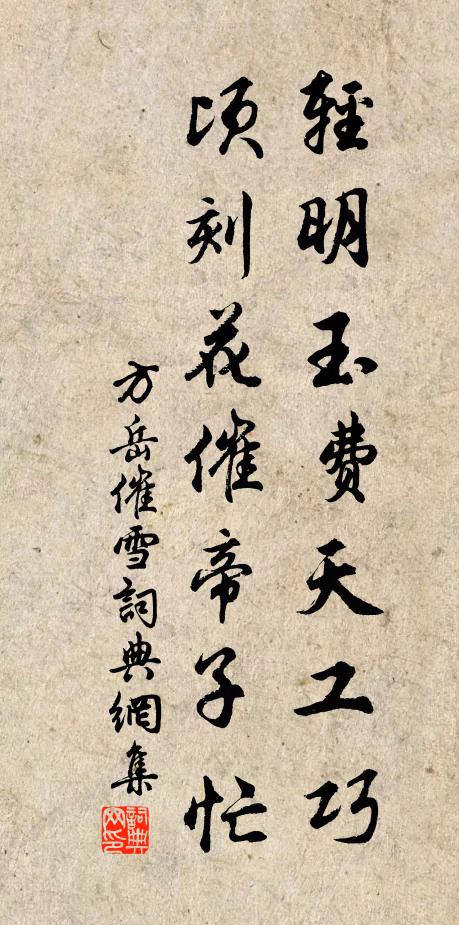 輕明玉費天工巧
頃刻花催帝子忙
方岳催雪詞典網集
詞典网印